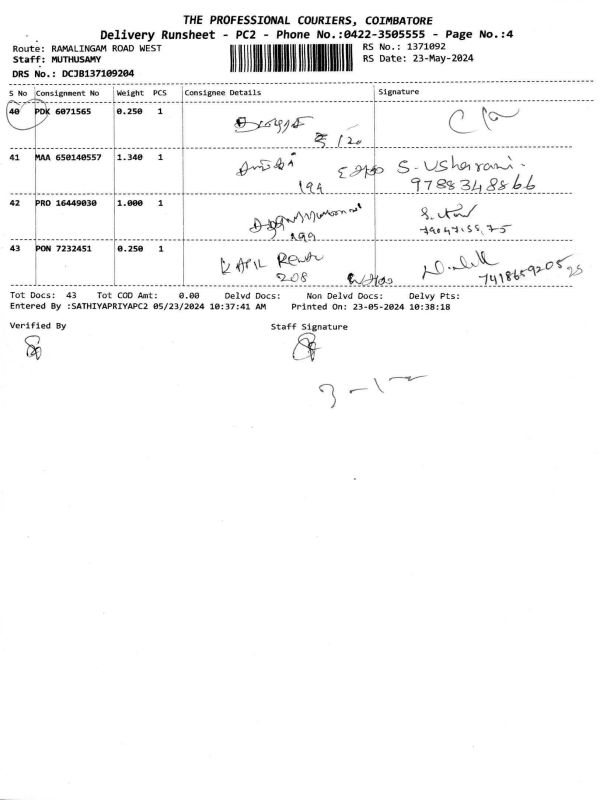 THE PROFESSIONAL COURIERS, COIMBATORE
Delivery Runsheet - PC2 - Phone No.:0422-3505555 - Page No.:4
Route: RAMALINGAM ROAD WEST
RS No.: 1371092
Staff: MUTHUSAMY
RS Date: 23-May-2024
DRS No.: DCJB137109204
S No Consignment No Weight PCS Consignee Details Signature
40 PDK 6071565 0.250 1
41 MAA 650140557 1.340 1 S. Usharani.
199 9788348866
42 PRO 16449030 1.000 1
199
43 PON 7232451 0.250 1 KAPIL
208
Tot Docs: 43 Tot COD Amt: 0.00 Delvd Docs: Non Delvd Docs: Delvy Pts:
Entered By :SATHIYAPRIYAPC2 05/23/2024 10:37:41 AM Printed On: 23-05-2024 10:38:18
Verified By Staff Signature